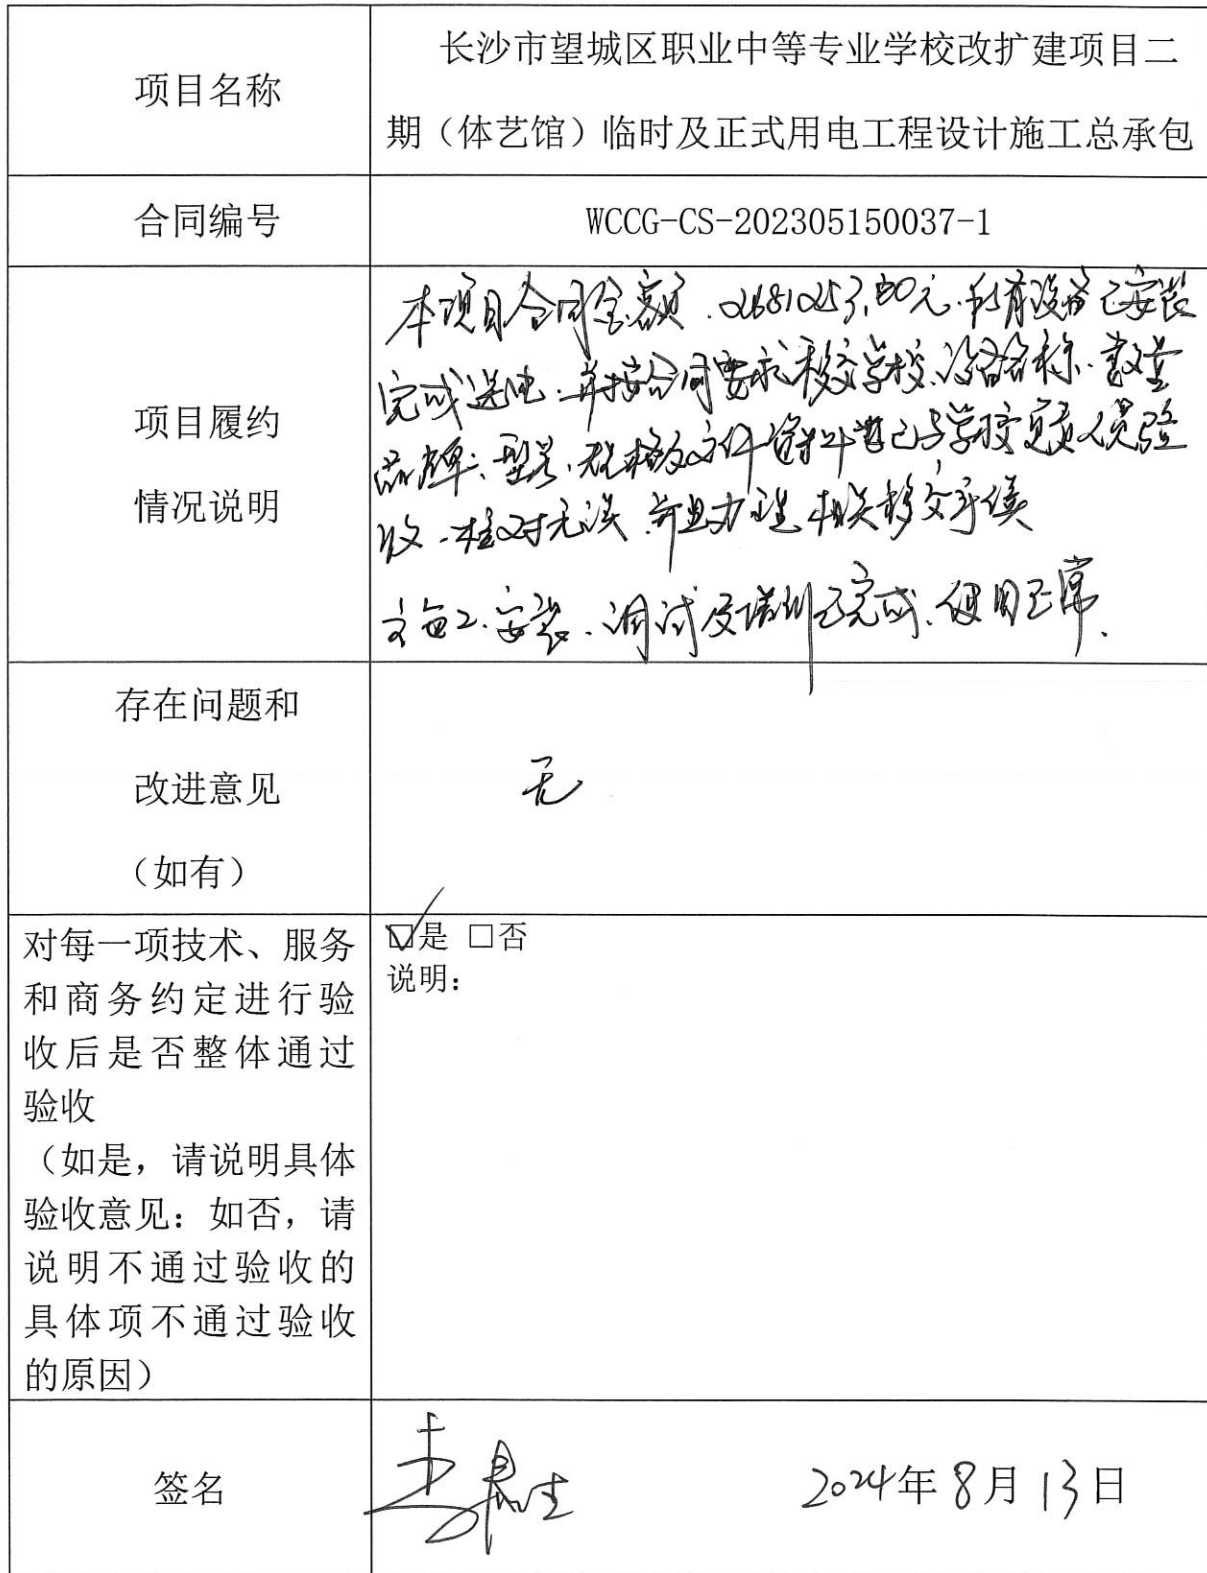 项目名称
长沙市望城区职业中等专业学校改扩建项目二
期（体艺馆）临时及正式用电工程设计施工总承包
合同编号
WCCG-CS-202305150037-1
项目履约
情况说明
本项目合同金额.2681253.00元.所有设备已安装
完成送电.并按合同要求移交学校.设备名称.数量
品牌、型号、规格及文件资料已与学校负责人员验
收.核对无误.并且办理相关移交手续
安装.调试及培训已完成.使用正常.
存在问题和
改进意见
（如有）
无
对每一项技术、服务
和商务约定进行验
收后是否整体通过
验收
（如是，请说明具体
验收意见：如否，请
说明不通过验收的
具体项不通过验收
的原因）
☑是 □否
说明：
签名
2024年8月13日